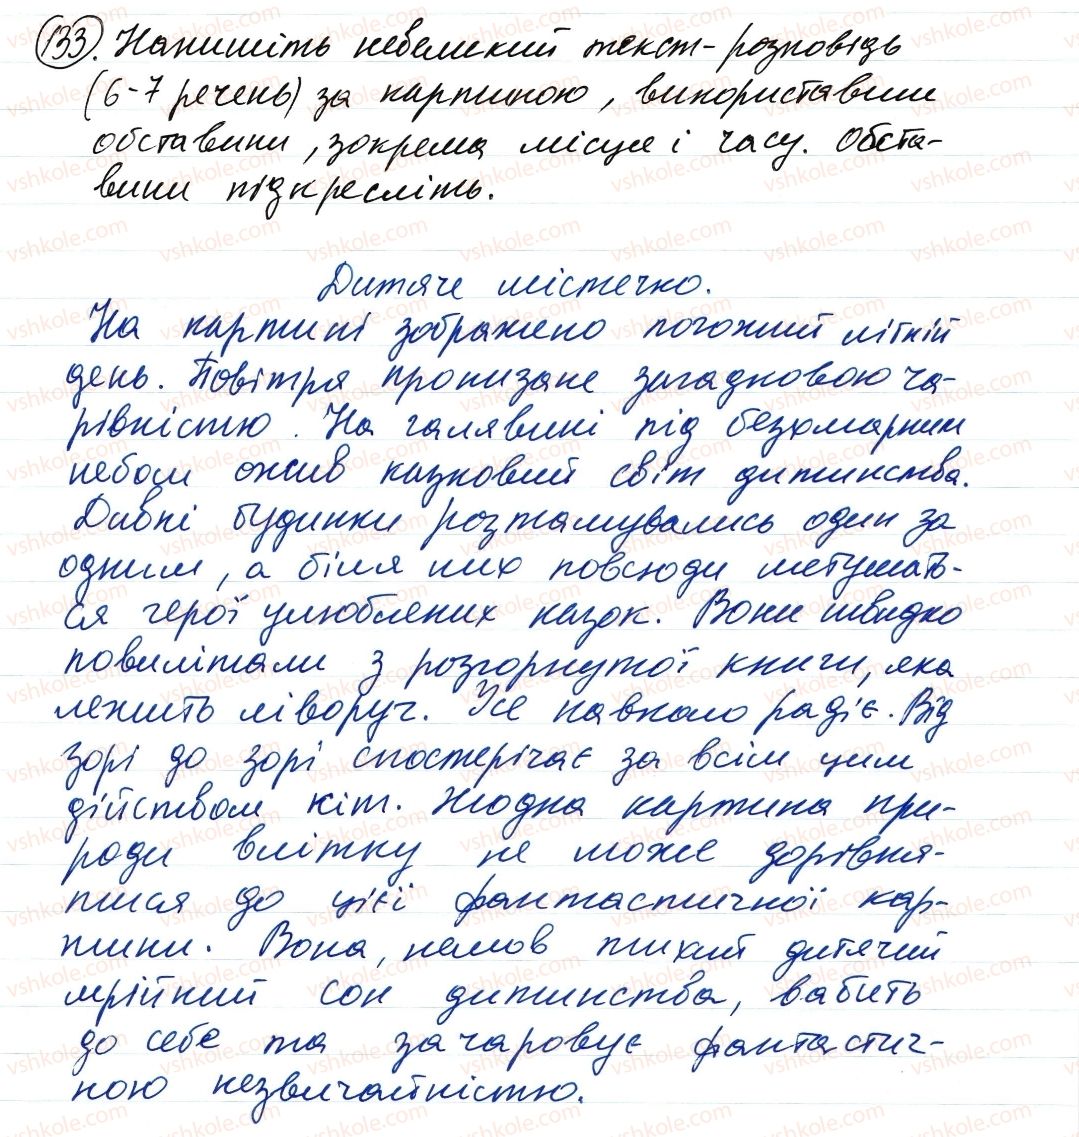 133. Напишіть невеликий текст-розповідь
(6-7 речень) за картиною, використавши
обставини, зокрема місця і часу. Обста-
вини підкресліть.
Дитяче містечко.
На картині зображено погожий літній
день. Повітря пронизане загадковою ча-
рівністю. На галявині під безхмарним
небом ожив казковий світ дитинства.
Дивні будинки розташувались один за
одним, а біля них повсюди метушать-
ся герої улюблених казок. Вони швидко
повилітали з розгорнутої книги, яка
лежить ліворуч. Усе навколо радіє. Від
зорі до зорі спостерічає за всім цим
дійством кіт. Жодна картина при-
роди влітку не може дорівня-
тися до цієї фантастичної кар-
тини. Вона, немов тихий дитячий
мрійний сон дитинства, вабить
до себе та зачаровує фантастич-
ною незвичайністю.